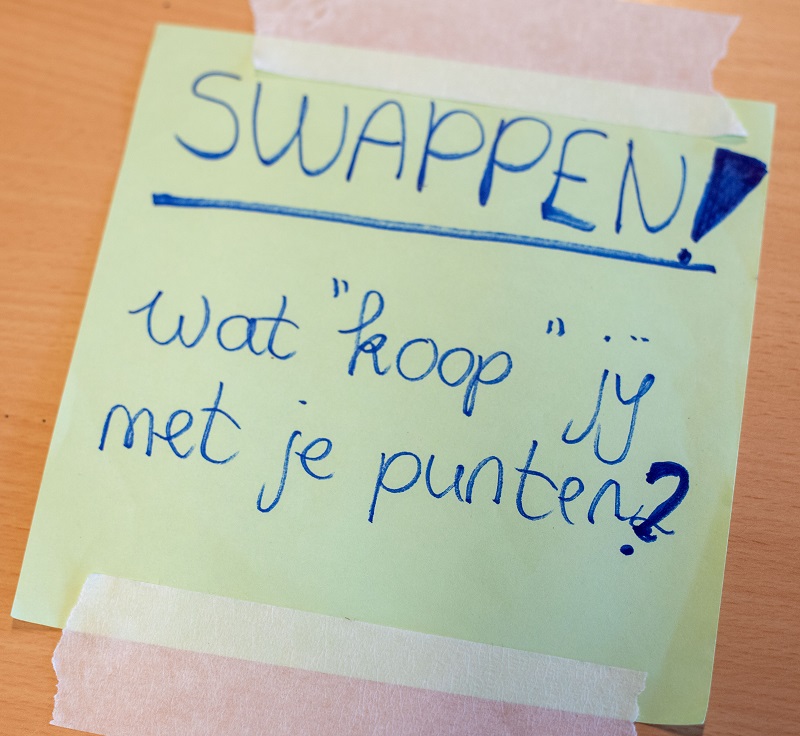 SWAPPEN!
wat "koop" jij
met je punten?